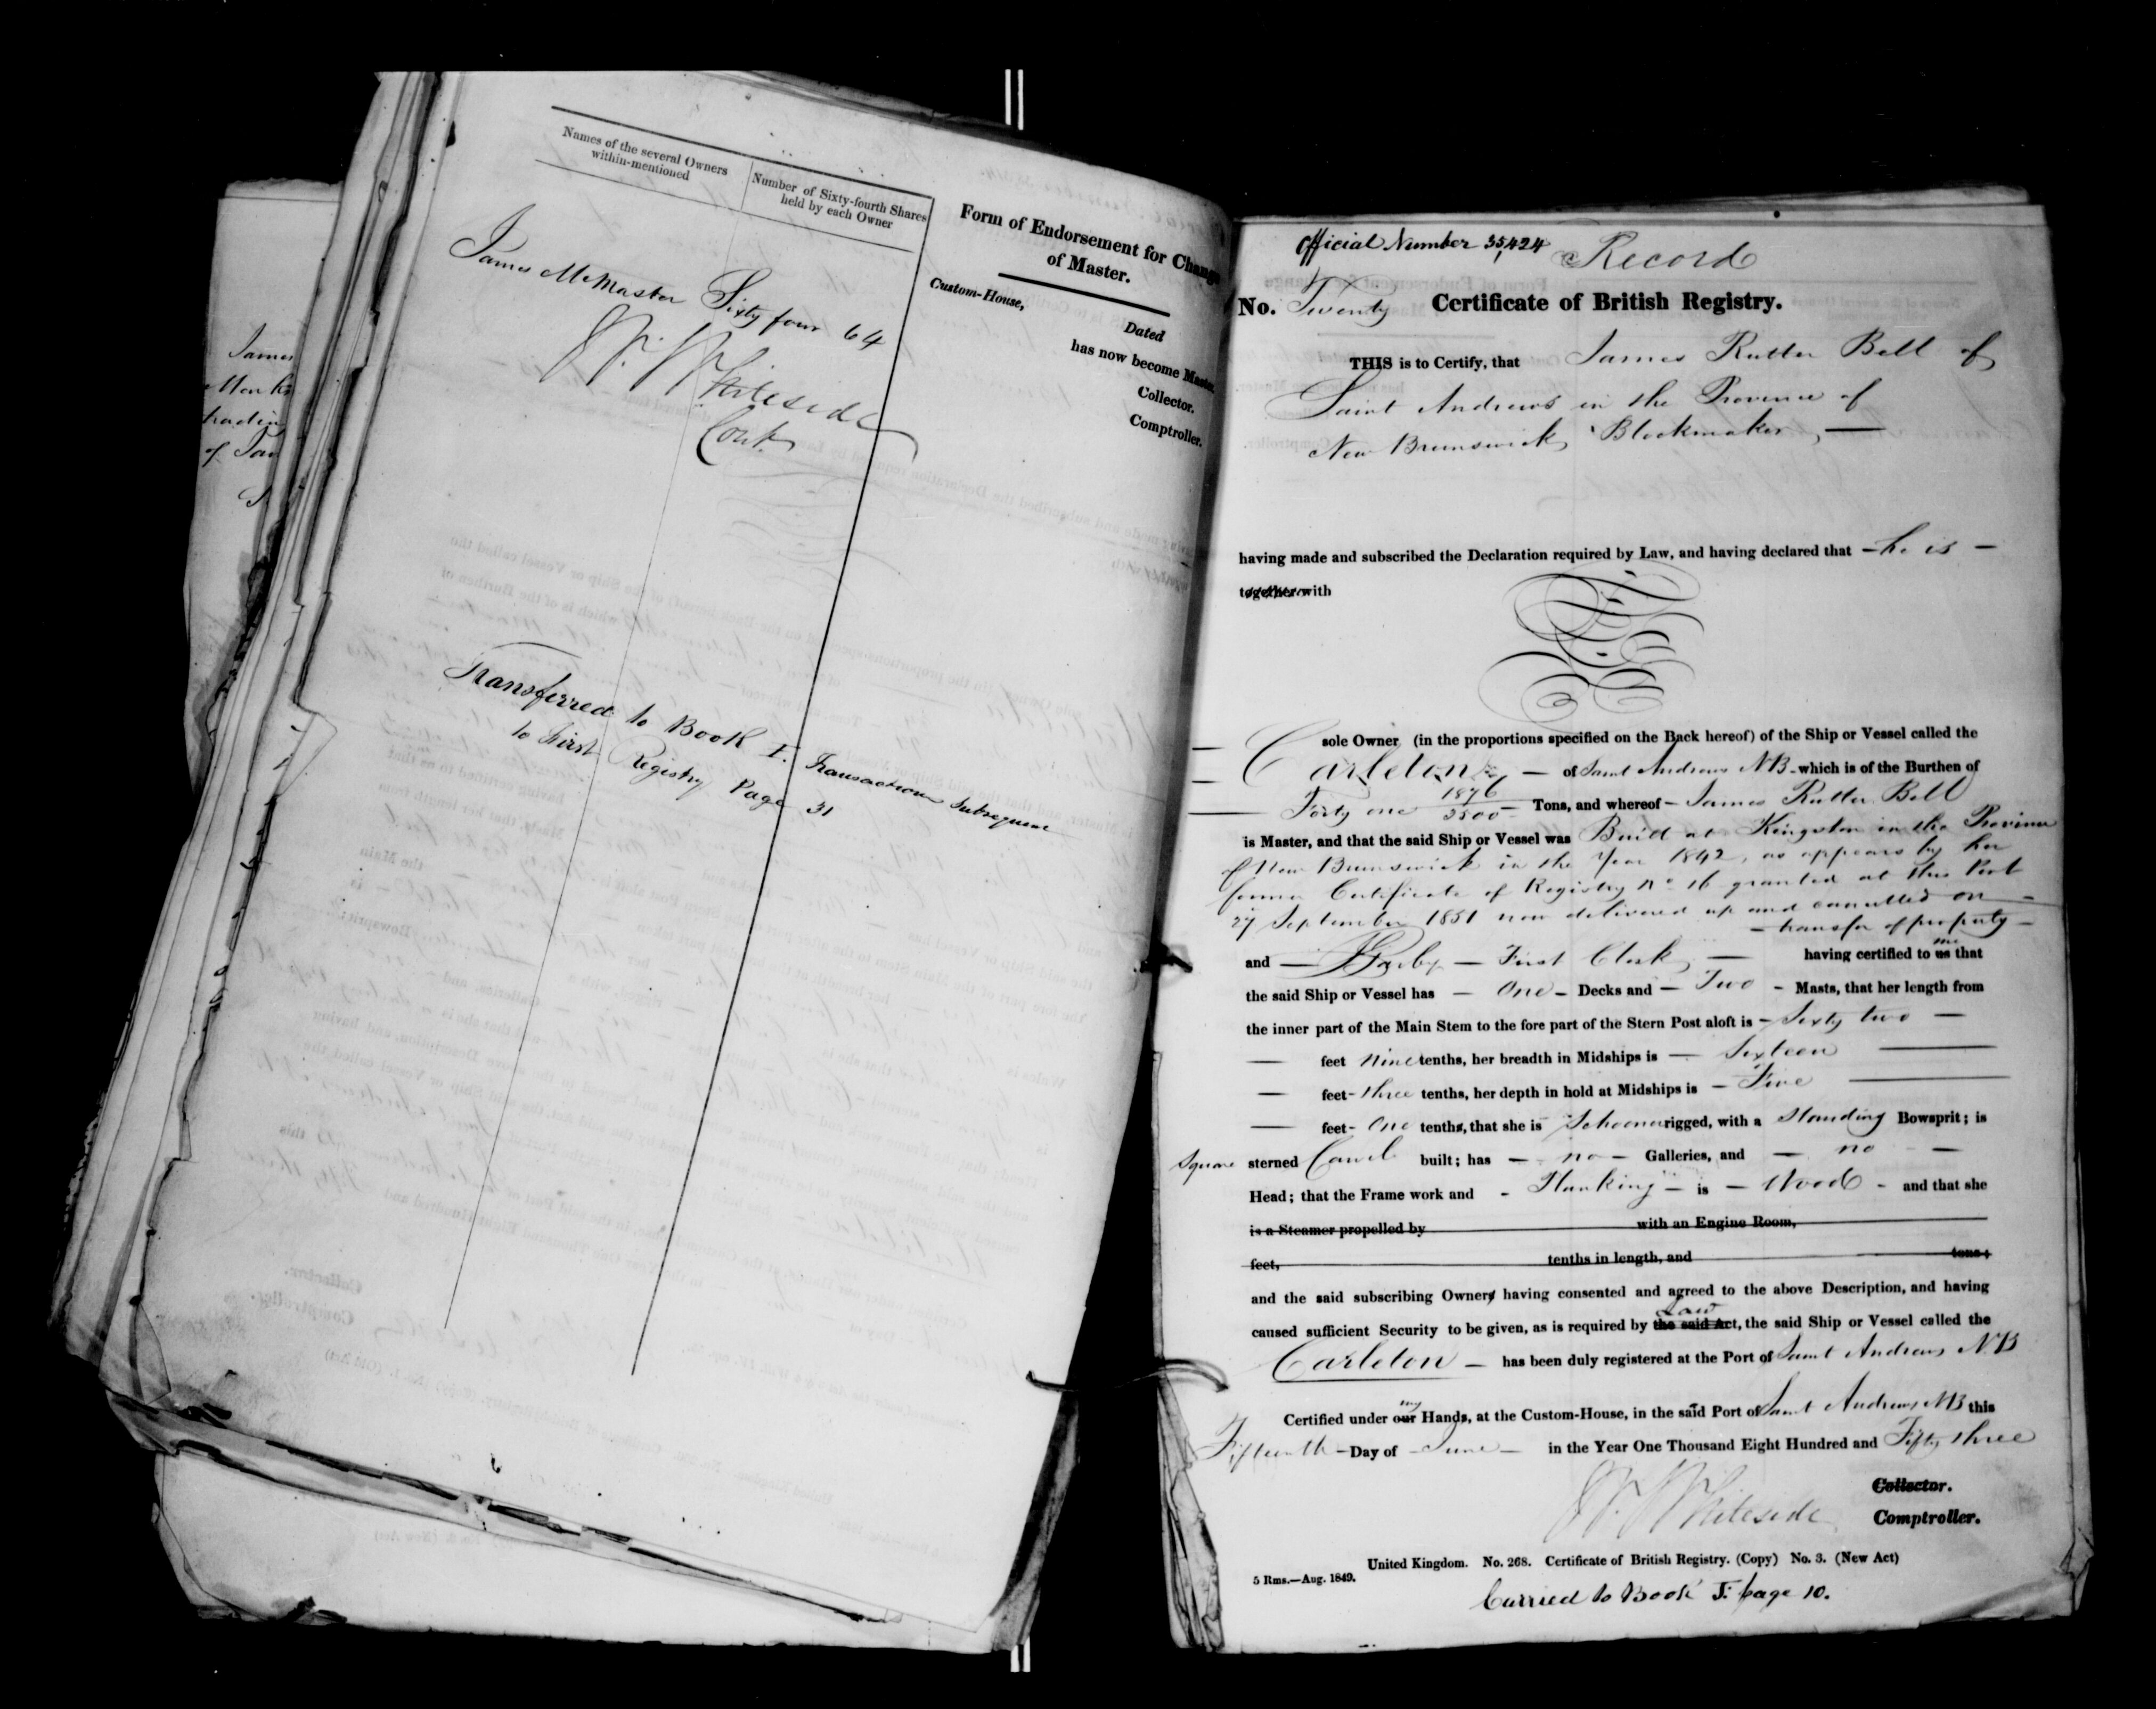 James
Names of the several Owners
within-mentioned
Number of Sixty-fourth Shares
held by each Owner
James McMaster Sixty four 64
W. Whiteside
Cont
Form of Endorsement for Change
of Master.
Custom-House,
Dated
has now become Master.
Collector.
Comptroller.
Transferred to Book I. Transactions Subsequent
to First Registry Page 31
Official Number 35,424 Record
No. Twenty Certificate of British Registry.
THIS is to Certify, that James Rutter Bell of
Saint Andrews in the Province of
New Brunswick Blockmaker, —
having made and subscribed the Declaration required by Law, and having declared that — he is —
together with
— sole Owner (in the proportions specified on the Back hereof) of the Ship or Vessel called the
— Carleton — of Saint Andrews NB — which is of the Burthen of
— Forty one 1876/3500 — Tons, and whereof — James Rutter Bell
is Master, and that the said Ship or Vessel was Build at Kingston in the Province
of New Brunswick in the Year 1842, as appears by her
former Certificate of Registry No 16 granted at this Port
27 September 1851 now delivered up and cancelled on —
— transfer of property —
and — — First Clerk — having certified to us me that
the said Ship or Vessel has — One — Decks and — Two — Masts, that her length from
the inner part of the Main Stem to the fore part of the Stern Post aloft is — Sixty two —
— feet nine tenths, her breadth in Midships is — Sixteen —
— feet — three tenths, her depth in hold at Midships is — Five —
— feet — One tenths, that she is Schooner rigged, with a Standing Bowsprit; is
Square sterned Carvel built; has — no — Galleries, and — no —
Head; that the Frame work and - Planking — is — Wood - and that she
is a Steamer propelled by with an Engine Room,
feet, tenths in length, and tons;
and the said subscribing Owners having consented and agreed to the above Description, and having
caused sufficient Security to be given, as is required by the said Act Law, the said Ship or Vessel called the
Carleton — has been duly registered at the Port of Saint Andrews NB
Certified under our my Hands, at the Custom-House, in the said Port of Saint Andrews NB this
Fifteenth — Day of — June — in the Year One Thousand Eight Hundred and Fifty three
W. Whiteside
Collector.
Comptroller.
United Kingdom. No. 268. Certificate of British Registry. (Copy) No. 3. (New Act)
5 Rms.—Aug. 1849.
Carried to Book I. page 10.